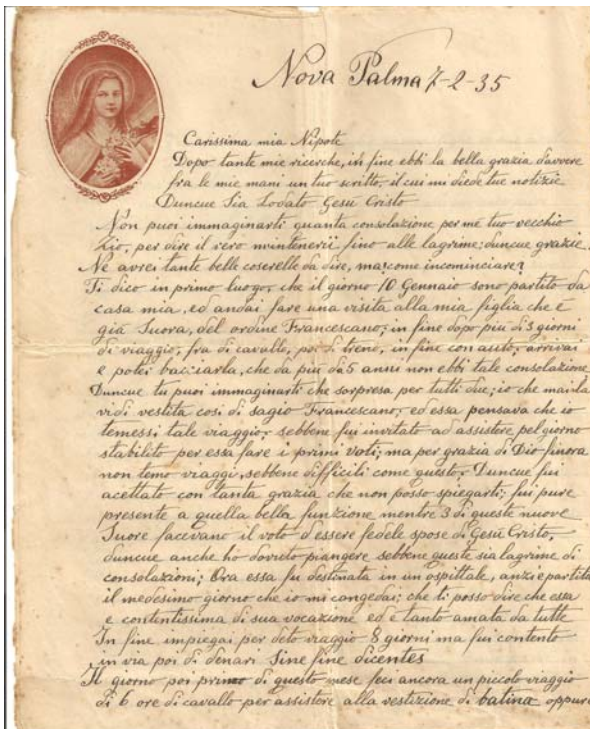 Nova Palma 7-2-35
Carissima mia Nipote
Dopo tante mie ricerche, in fine ebbi la bella grazia d'avvere
fra le mie mani un tuo scritto, il cui mi diede tue notizie
Duncue Sia Lodato Gesù Cristo
Non puoi immaginarti quanta consolazione per me tuo vecchio
Zio, per dire il vero mintenerii fino alle lagrime; duncue grazie.
Ne avrei tante belle coserelle da dire, ma! come incominciare?
Ti dico in primo luogo, che il giorno 10 Gennaio sono partito da
casa mia, ed andai fare una visita alla mia figlia che é
giá Suora, del ordine Francescano; in fine dopo piu di 3 giorni
di viaggio, fra di cavallo, poi di treno, in fine con auto, arrivai
e potei bacciarla, che da piu da 5 anni non ebbi tale consolazione
Duncue tu puoi immaginarti che sorpresa per tutti due; io che mai la
vidi vestita cosi di sagio Francescano, ed essa pensava che io
temessi tale viaggio, sebbene fui invitato ad assistere pel giorno
stabilito per essa fare i primi voti, ma per grazia di Dio finora
non temo viaggi, sebbene difficili come questo. Duncue fui
acettato con tanta grazia che non posso spiegarti; fui pure
presente a quella bella funzione mentre 3 di queste nuove
Suore facevano il voto d'essere fedele spose di Gesù Cristo,
duncue anche ho dovuto piangere sebbene queste sia lagrime di
consolazioni; Ora essa fu destinata in un ospittale, anzi e partita
il medesimo giorno che io mi cangedai; che ti posso dire che essa
e contentissima di sua vocazione ed e tanto amata da tutte
In fine impiegai per deto viaggio 8 giorni ma fui contento
in via poi di denari Sine fine dicentes
Il giorno poi primo di questo mese feci ancora un piccolo viaggio
di 6 ore di cavallo per assistere alla vestizione di batina oppure